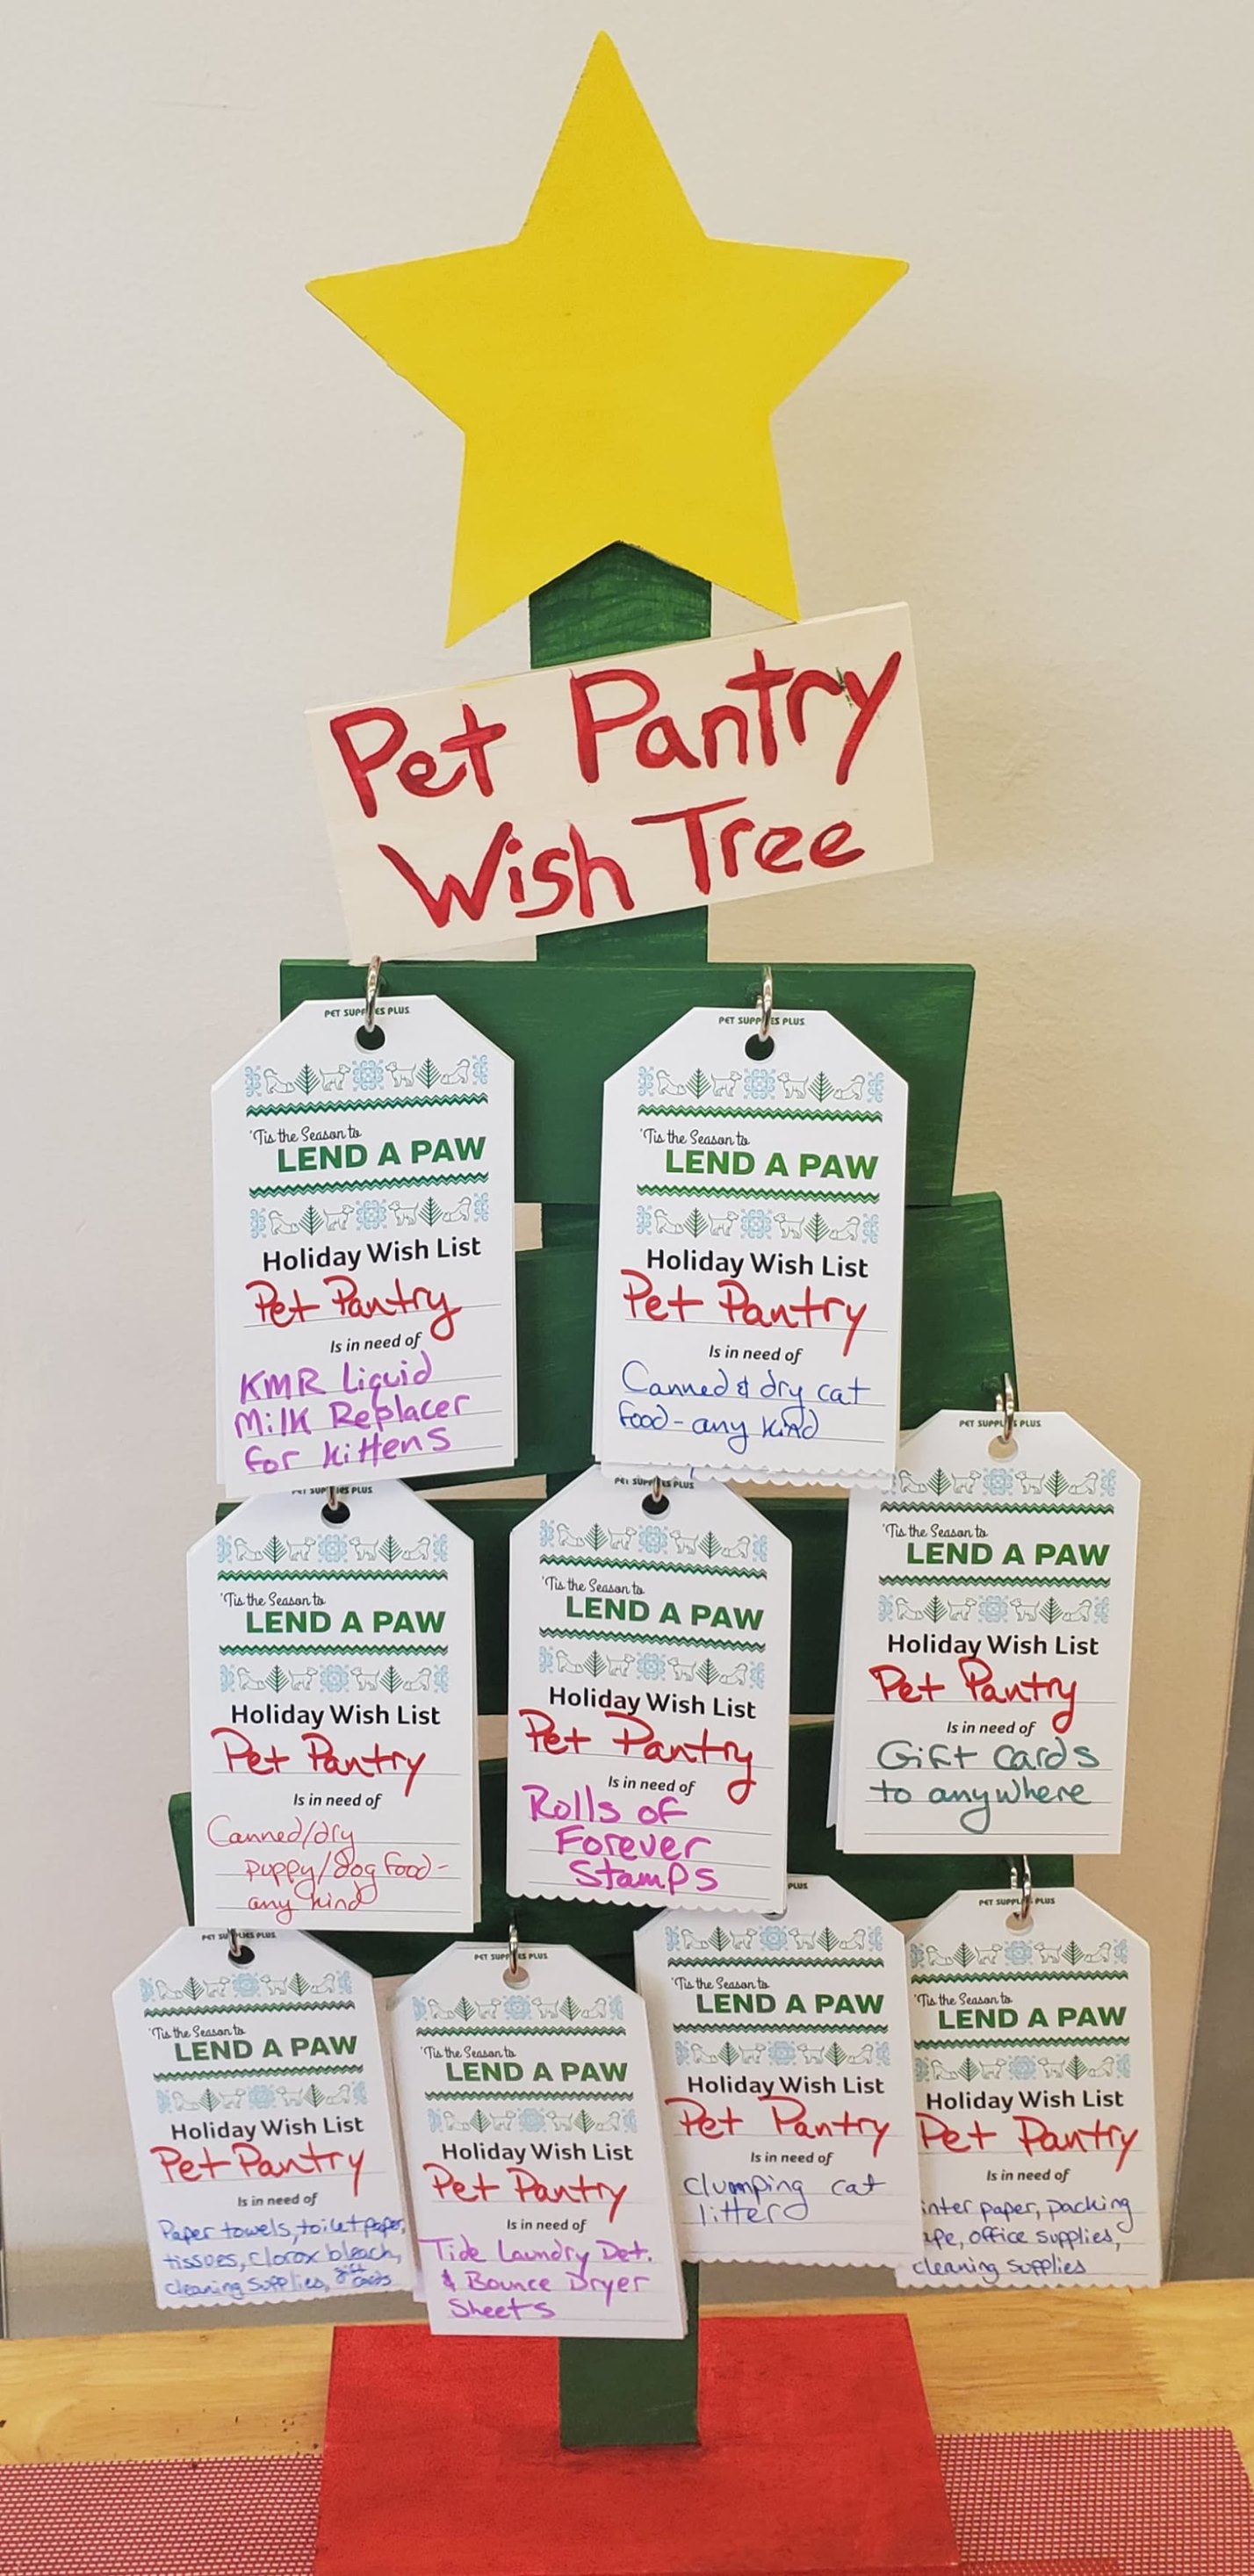 Pet Pantry
Wish Tree
PET SUPPLIES PLUS
'Tis the Season to
LEND A PAW
Holiday Wish List
Pet Pantry
Is in need of
KMR Liquid
Milk Replacer
for kittens
PET SUPPLIES PLUS
'Tis the Season to
LEND A PAW
Holiday Wish List
Pet Pantry
Is in need of
Canned & dry cat
food - any kind
PET SUPPLIES PLUS
'Tis the Season to
LEND A PAW
Holiday Wish List
Pet Pantry
Is in need of
Gift cards
to anywhere
PET SUPPLIES PLUS
'Tis the Season to
LEND A PAW
Holiday Wish List
Pet Pantry
Is in need of
Canned/dry
puppy/dog food -
any kind
PET SUPPLIES PLUS
'Tis the Season to
LEND A PAW
Holiday Wish List
Pet Pantry
Is in need of
Rolls of
Forever
Stamps
PET SUPPLIES PLUS
'Tis the Season to
LEND A PAW
Holiday Wish List
Pet Pantry
Is in need of
Paper towels, toilet paper,
tissues, clorox bleach,
cleaning supplies, gift cards
PET SUPPLIES PLUS
'Tis the Season to
LEND A PAW
Holiday Wish List
Pet Pantry
Is in need of
Tide Laundry Det.
& Bounce Dryer
Sheets
PLUS
'Tis the Season to
LEND A PAW
Holiday Wish List
Pet Pantry
Is in need of
clumping cat
litter
PET SUPPLIES PLUS
'Tis the Season to
LEND A PAW
Holiday Wish List
Pet Pantry
Is in need of
inter paper, packing
ape, office supplies,
cleaning supplies